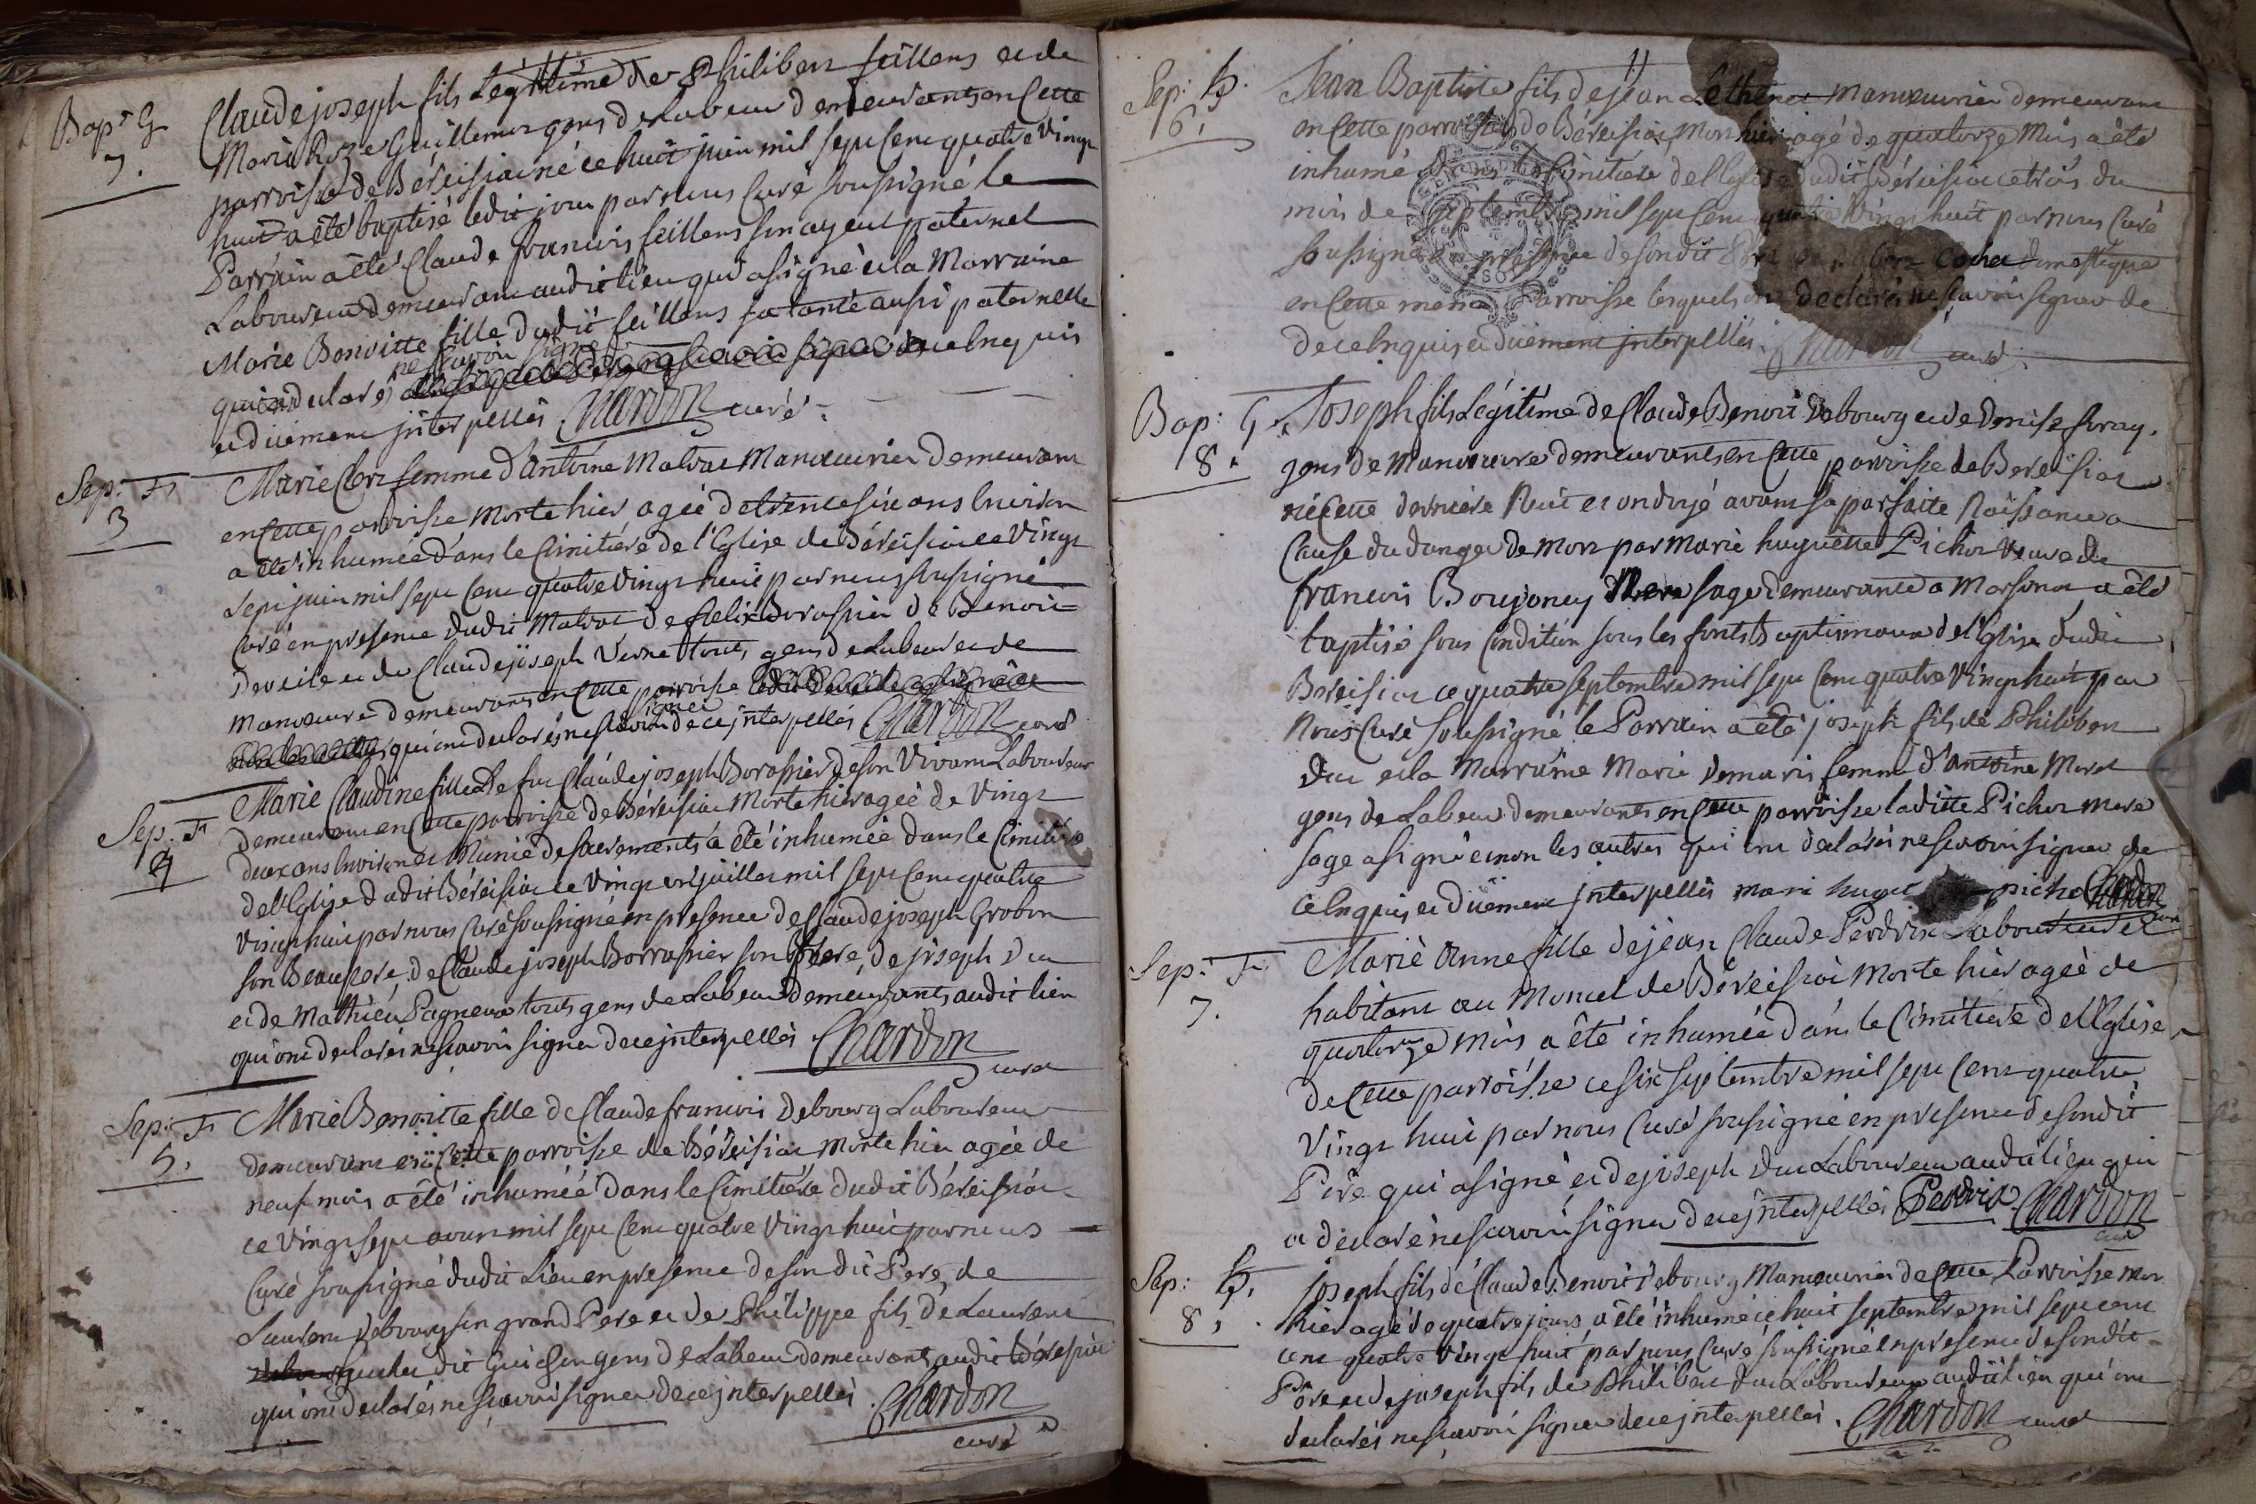 Bapt G
7.
Claude joseph fils Legitime de Philibert feillens et de
Marie Roze Guillemin gens de Labeur demeurants en Cette
parroisse de Béreisia né ce huit juin mil sept Cent quatre vingt
huit a été baptisé ledit jour par nous Curé soussigné le
Parrain a été Claude francois feillens son ayeul paternel
Laboureur demeurant audit lieu qui a signé et la Marraine
Marie Benoitte fille dudit feillens sa tante aussi paternelle
ne scavoir signer
qui a declaré de ce Enquis
et düement jnterpellés Chardon curé
Sep. F
3
Marie Clerc femme d'antoine Matrat Manœuvrier demeurant
en Cette parroisse morte hier agée de trente six ans Environ
a été inhumée dans le Cimitiére de l'Eglise de Béreisia ce vingt
sept juin mil sept Cent quatre vingt huit par nous soussigné
Curé en presence dudit Matrat de felix Borassier de Benoit
et de Claude joseph Verne touts gens de Labeur et de
manœuvre demeurants en Cette parroisse
signer
qui ont declarés ne scavoir de ce jnterpellés Chardon curé
Sep. F
4
Marie Claudine fille de feu Claude joseph Borassier de son Vivant Laboureur
demeurant en Cette parroisse de Béreisia Morte hier agée de vingt
deux ans Environ et Munie de sacrements a été inhumée dans le Cimitiére
de l'Eglise dudit Béreisia ce vingt un juillet mil sept Cent quatre
vingt huit par nous Curé soussigné en presence de Claude joseph Grobon
son Beaupere, de Claude joseph Borrassier son frere, de joseph Duc
et de Mathieu Pagneux touts gens de Labeur demeurants audit lieu
qui ont declarés ne scavoir signer de ce jnterpellés Chardon
curé
Sep: F
5.
Marie Benoitte fille de Claude francois Debourg Laboureur
demeurant en Cette parroisse de Béreisia morte hier agée de
neuf mois a été inhumée dans le Cimitiére dudit Béreissia
ce vingt sept aoust mil sept Cent quatre vingt huit par nous
Curé soussigné dudit Lieu en presence de son dit Pere, de
Laurent Debourg son grand Pere et de Philippe fils de Laurent
dit Guichon gens de Labeur demeurants audit Béreissia
qui ont declarés ne scavoir signer de ce jnterpellés. Chardon
curé
11
Sep: h.
6.
Jean Baptiste fils de jean Lethenet Manœuvrier demeurant
en Cette parroisse de Béreisia, mort hier agé de quatorze Mois a été
inhumé dans le Cimitiére de l'Eglise dudit Béreisia ce trois du
mois de septembre mil sept Cent quatre vingt huit par nous Curé
soussigné en presence de son dit Pere domestique
en Cette meme Parroisse lesquels ont declaré ne scavoir signer de
de ce Enquis et düement jnterpellés. Chardon curé
Bap: G
8.
Joseph fils Légitime de Claude Benoit Debourg et de Denise foray,
gens de Manœuvre demeurants en Cette parroisse de Bereisia
né Cette derniere Nuit et ondoyé avant sa parfaite Naissance a
Cause du danger de mort par Marie huguette Pichon veuve de
francois Boujoney Mere sage demeurante a Marsonna a été
baptisé sous Condition sous les fonts Baptismaux de l'Eglise dudit
Bereisia ce quatre septembre mil sept Cent quatre vingt huit par
Nous Curé soussigné le Parrain a été joseph fils de Philibert
Duc et la Marraine Marie Demaris femme d'antoine Morel
gens de Labeur demeurants en Cette parroisse laditte Pichon mere
sage a signé et non les autres qui ont declarés ne scavoir signer de
ce Enquis et düement jnterpellés mari huget picho Chardon
curé
Sep: F
7.
Marie Anne fille de jean Claude Perdrix Laboureur
habitant au Moncel de Béreissia Morte hier agée de
quatorze Mois a été inhumée dans le Cimitiere de l'Eglise
de Cette parroisse ce six septembre mil sept Cent quatre
vingt huit par nous Curé soussigné en presence de son dit
Pere qui a signé et de joseph Duc Laboureur audit lieu qui
a declaré ne scavoir signer de ce jnterpellés Perdrix Chardon
curé
Sep: h.
8.
joseph fils de Claude Benoit Debourg Manœuvrier de Cette Parroisse mort
hier agé de quatre jours a été inhumé ce huit septembre mil sept cent
quatre vingt huit par nous Curé soussigné en presence de son dit
Pere et de joseph fils de Philibert Duc Laboureur audit lieu qui ont
declarés ne scavoir signer de ce jnterpellés. Chardon curé